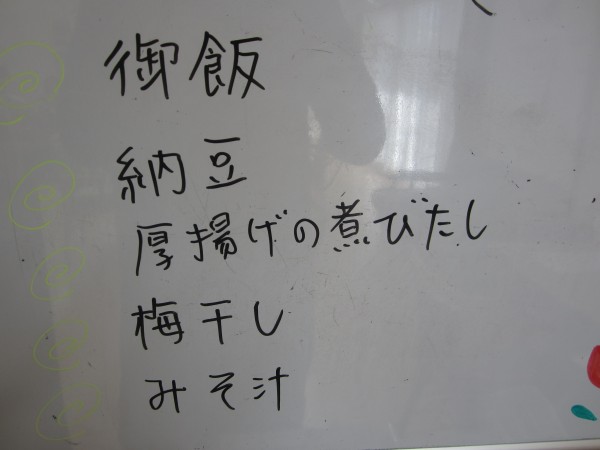 御飯
納豆
厚揚げの煮びたし
梅干し
みそ汁